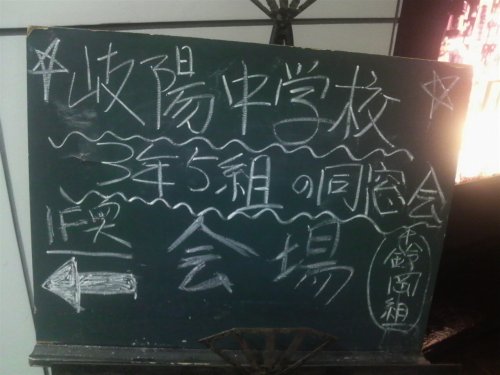 ☆岐陽中学校☆
3年5組の同窓会
1F奥
会場
鈴岡組